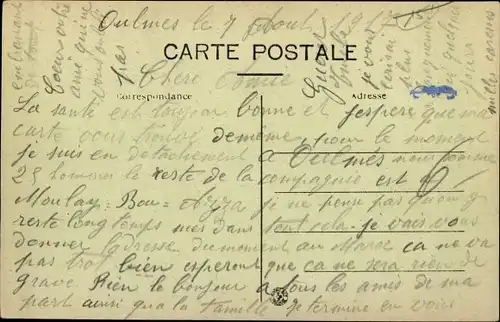 Oulmes le 7 Août 1917
CARTE POSTALE
Chère Amie
Correspondance
Adresse
La santé est toujour bonne et j'espère que ma
carte vous trouve de même, pour le moment
je suis en détachement a Oulmes nous somme
25 homme le reste de la compagnie est a
Moulay-Bou-Azza je ne pense pas qu'on
reste longtemps mes dans tout cela je vais vous
donner l'adresse du moment au Maroc ca ne va
pas trop bien esperont que ca ne sera rien de
grave. Rien le bonjour a tous les amis de ma
part ainsi qua la famille je termine en vous
embrassant
Coeur votre
ami qui ne
vous oubli
pas
je vous
écrirai
plus
longuement
dans quelque
jours
mille caresses